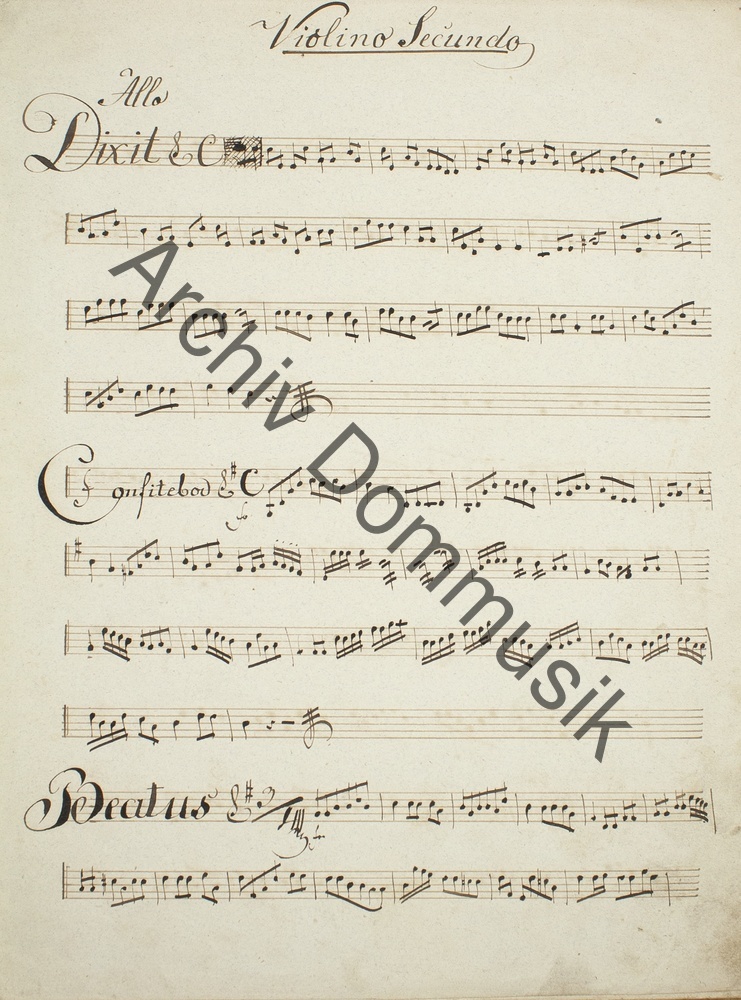 Violino Secundo
Allo
Dixit
Confitebor
Beatus
Archiv Dommusik